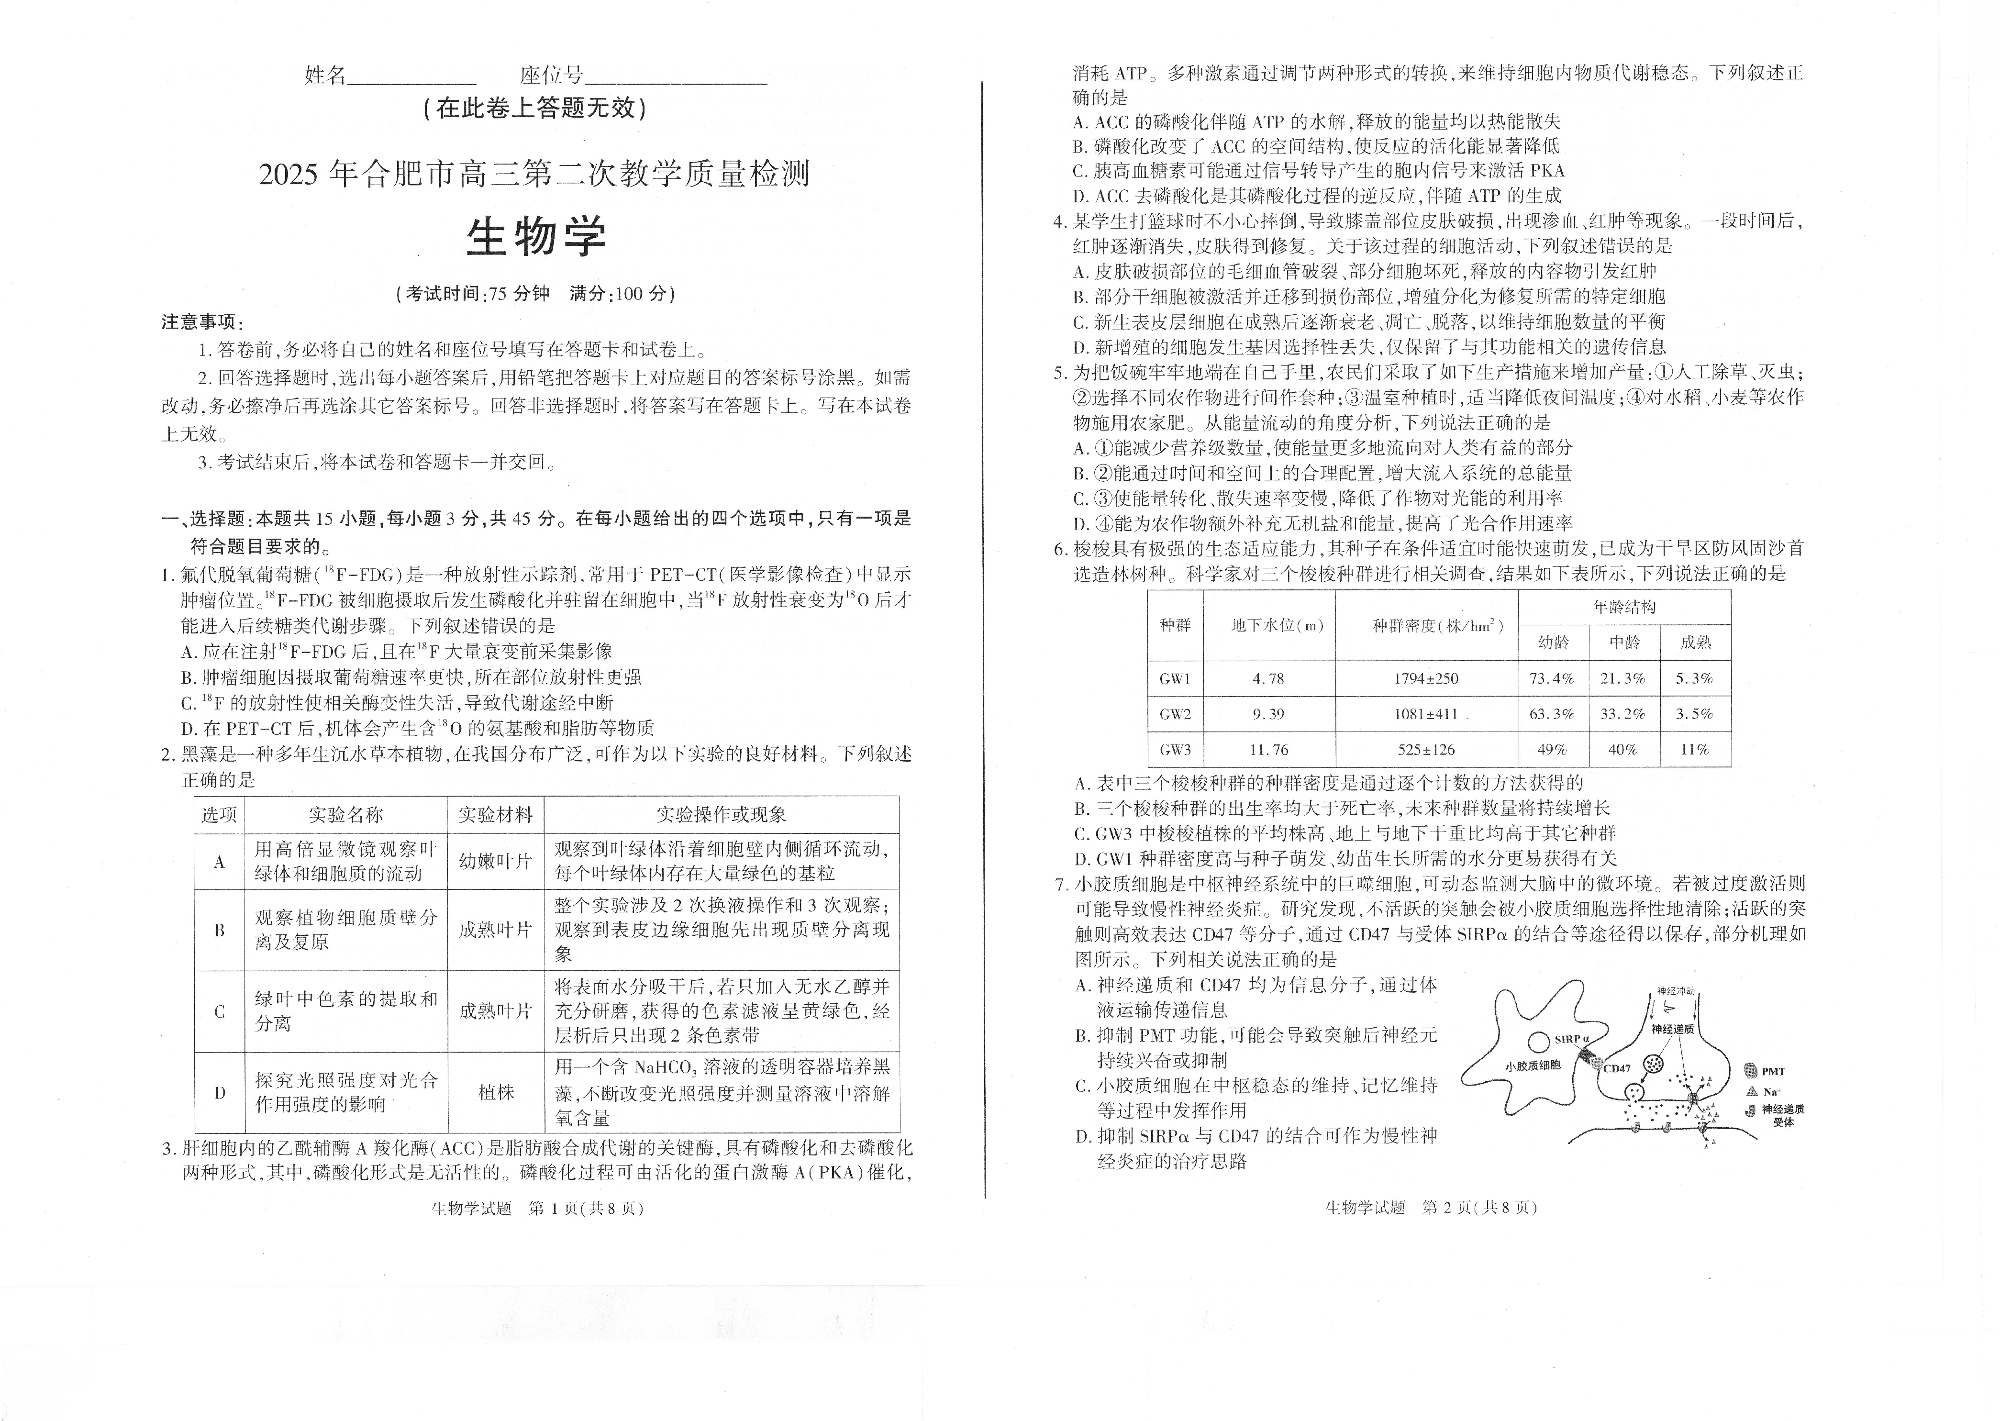 姓名____________ 座位号________________
(在此卷上答题无效)
2025 年合肥市高三第二次教学质量检测
生物学
(考试时间:75 分钟　满分:100 分)
注意事项:
1. 答卷前,务必将自己的姓名和座位号填写在答题卡和试卷上。
2. 回答选择题时,选出每小题答案后,用铅笔把答题卡上对应题目的答案标号涂黑。如需
改动,务必擦净后再选涂其它答案标号。回答非选择题时,将答案写在答题卡上。写在本试卷
上无效。
3. 考试结束后,将本试卷和答题卡一并交回。
一、选择题:本题共 15 小题,每小题 3 分,共 45 分。在每小题给出的四个选项中,只有一项是
符合题目要求的。
1. 氟代脱氧葡萄糖(¹⁸F-FDG)是一种放射性示踪剂,常用于 PET-CT(医学影像检查)中显示
肿瘤位置。¹⁸F-FDG 被细胞摄取后发生磷酸化并驻留在细胞中,当¹⁸F 放射性衰变为¹⁸O 后才
能进入后续糖类代谢步骤。下列叙述错误的是
A. 应在注射¹⁸F-FDG 后,且在¹⁸F 大量衰变前采集影像
B. 肿瘤细胞因摄取葡萄糖速率更快,所在部位放射性更强
C. ¹⁸F 的放射性使相关酶变性失活,导致代谢途经中断
D. 在 PET-CT 后,机体会产生含¹⁸O 的氨基酸和脂肪等物质
2. 黑藻是一种多年生沉水草本植物,在我国分布广泛,可作为以下实验的良好材料。下列叙述
正确的是
选项 实验名称 实验材料 实验操作或现象
A 用高倍显微镜观察叶绿体和细胞质的流动 幼嫩叶片 观察到叶绿体沿着细胞壁内侧循环流动,
每个叶绿体内存在大量绿色的基粒
B 观察植物细胞质壁分离及复原 成熟叶片 整个实验涉及 2 次换液操作和 3 次观察;
观察到表皮边缘细胞先出现质壁分离现
象
C 绿叶中色素的提取和分离 成熟叶片 将表面水分吸干后,若只加入无水乙醇并
充分研磨,获得的色素滤液呈黄绿色,经
层析后只出现 2 条色素带
D 探究光照强度对光合作用强度的影响 植株 用一个含 NaHCO₃ 溶液的透明容器培养黑
藻,不断改变光照强度并测量溶液中溶解
氧含量
3. 肝细胞内的乙酰辅酶 A 羧化酶(ACC)是脂肪酸合成代谢的关键酶,具有磷酸化和去磷酸化
两种形式,其中,磷酸化形式是无活性的。磷酸化过程可由活化的蛋白激酶 A(PKA)催化,
生物学试题　第 1 页(共 8 页)
消耗 ATP。多种激素通过调节两种形式的转换,来维持细胞内物质代谢稳态。下列叙述正
确的是
A. ACC 的磷酸化伴随 ATP 的水解,释放的能量均以热能散失
B. 磷酸化改变了 ACC 的空间结构,使反应的活化能显著降低
C. 胰高血糖素可能通过信号转导产生的胞内信号来激活 PKA
D. ACC 去磷酸化是其磷酸化过程的逆反应,伴随 ATP 的生成
4. 某学生打篮球时不小心摔倒,导致膝盖部位皮肤破损,出现渗血、红肿等现象。一段时间后,
红肿逐渐消失,皮肤得到修复。关于该过程的细胞活动,下列叙述错误的是
A. 皮肤破损部位的毛细血管破裂、部分细胞坏死,释放的内容物引发红肿
B. 部分干细胞被激活并迁移到损伤部位,增殖分化为修复所需的特定细胞
C. 新生表皮层细胞在成熟后逐渐衰老、凋亡、脱落,以维持细胞数量的平衡
D. 新增殖的细胞发生基因选择性丢失,仅保留了与其功能相关的遗传信息
5. 为把饭碗牢牢地端在自己手里,农民们采取了如下生产措施来增加产量:①人工除草、灭虫;
②选择不同农作物进行间作套种;③温室种植时,适当降低夜间温度;④对水稻、小麦等农作
物施用农家肥。从能量流动的角度分析,下列说法正确的是
A. ①能减少营养级数量,使能量更多地流向对人类有益的部分
B. ②能通过时间和空间上的合理配置,增大流入系统的总能量
C. ③使能量转化、散失速率变慢,降低了作物对光能的利用率
D. ④能为农作物额外补充无机盐和能量,提高了光合作用速率
6. 梭梭具有极强的生态适应能力,其种子在条件适宜时能快速萌发,已成为干旱区防风固沙首
选造林树种。科学家对三个梭梭种群进行相关调查,结果如下表所示,下列说法正确的是
种群 地下水位(m) 种群密度(株/hm²) 年龄结构
幼龄 中龄 成熟
GW1 4.78 1794±250 73.4% 21.3% 5.3%
GW2 9.39 1081±411 63.3% 33.2% 3.5%
GW3 11.76 525±126 49% 40% 11%
A. 表中三个梭梭种群的种群密度是通过逐个计数的方法获得的
B. 三个梭梭种群的出生率均大于死亡率,未来种群数量将持续增长
C. GW3 中梭梭植株的平均株高、地上与地下干重比均高于其它种群
D. GW1 种群密度高与种子萌发、幼苗生长所需的水分更易获得有关
7. 小胶质细胞是中枢神经系统中的巨噬细胞,可动态监测大脑中的微环境。若被过度激活则
可能导致慢性神经炎症。研究发现,不活跃的突触会被小胶质细胞选择性地清除;活跃的突
触则高效表达 CD47 等分子,通过 CD47 与受体 SIRPα 的结合等途径得以保存,部分机理如
图所示。下列相关说法正确的是
A. 神经递质和 CD47 均为信息分子,通过体
液运输传递信息
B. 抑制 PMT 功能,可能会导致突触后神经元
持续兴奋或抑制
C. 小胶质细胞在中枢稳态的维持、记忆维持
等过程中发挥作用
D. 抑制 SIRPα 与 CD47 的结合可作为慢性神
经炎症的治疗思路
神经冲动
神经递质
SIRP α
小胶质细胞
CD47
PMT
Na⁺
神经递质
受体
生物学试题　第 2 页(共 8 页)